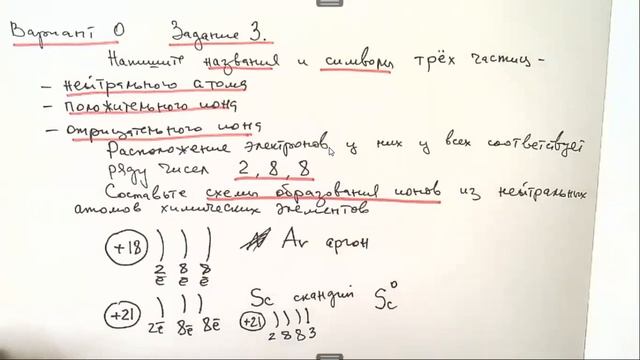 Вариант 0 Задание 3.
Напишите названия и символы трёх частиц -
- нейтрального атома
- положительного иона
- отрицательного иона
Расположение электронов у них у всех соответствует
ряду чисел 2, 8, 8
Составьте схемы образования ионов из нейтральных
атомов химических элементов
+18 Ar аргон
2 8 8
e e e
+21 Sc скандий Sc 0
2e 8e 8e +21 2 8 8 3